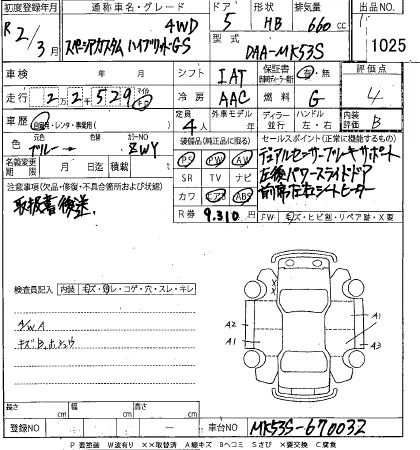 初度登録年月 通称車名・グレード ドア 形状 排気量 出品NO
R2/3月 スペーシアカスタム ハイブリッドGS 4WD 5 HB 660cc 1025
型式 DAA-MK53S
車検 年 月 シフト IAT 保証書 有・無 評価点
走行 22千529 マイル キロ 冷房 AAC 燃料 G 4
車歴 自家用・レンタ・事業用( ) 定員 4人 外車モデル ディーラー 並行 ハンドル 左・右 内装評価 B
色 元色 ブルー→ 色 カラーNO ZWY 装備品(純正品に限る) セールスポイント(正常に機能するもの)
名義変更期限 月 日迄 積載 PS PW AW デュアルセンサーブレーキサポート
注意事項(欠品・修復・不具合箇所および状態) SR TV ナビ 左後パワースライドドア
取扱書後送 カワ エアB ABS 前席左右シートヒーター
R券 9.310円 FW キズ・ヒビ割・リペア跡・X要
検査員記入 内装 キズ・汚レ・コゲ・穴・スレ・キレ
A/W A
A2 A1
A1 A3
長さ cm 幅 cm 高さ cm
登録NO ー 車台NO MK53S-670032
P 要塗装 W波有り XX取替済 A線キズ Bヘコミ Sさび X要交換 C腐食